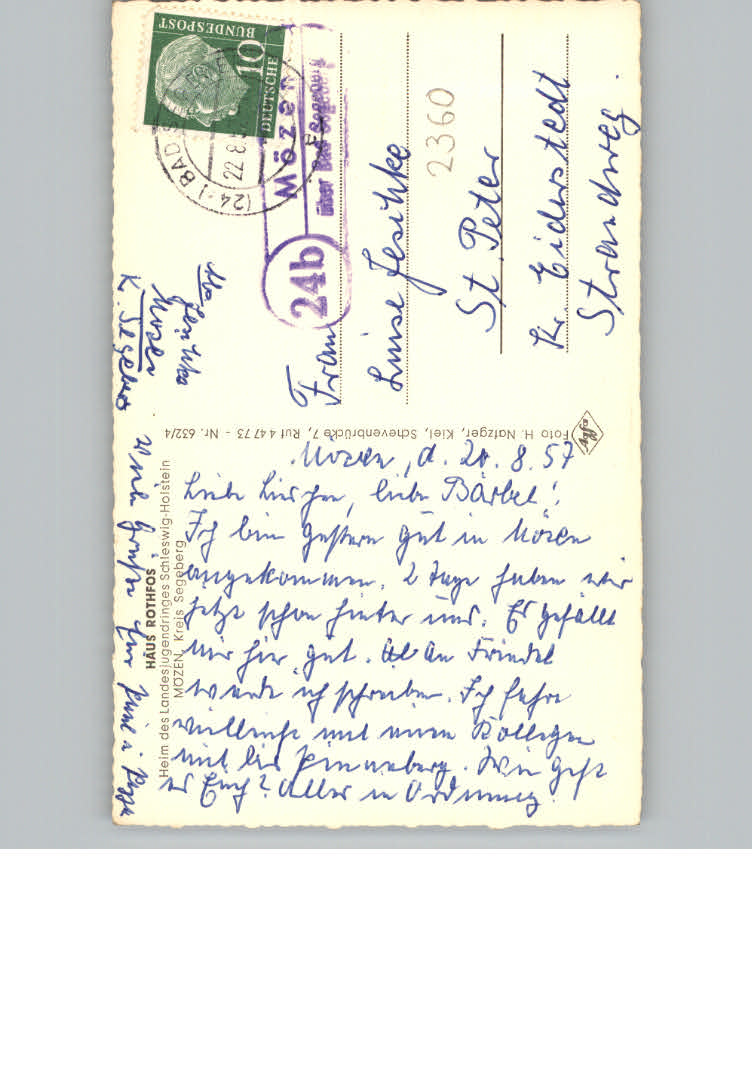 Mözen, d. 20. 8. 57
Liebe Lieschen, liebe Bärbel!
Ich bin gestern gut in Mözen
angekommen. 2 Tage haben wir
jetzt schon hinter uns. Es gefällt
mir hier gut. An Friedel
werde ich schreiben. Ich fahre
vielleicht mit einem Kollegen
mit bis Pinneberg. Wie geht
es Euch? Alles in Ordnung?
Viele Grüße Euer
HAUS ROTHFOS
Heim des Landesjugendringes Schleswig-Holstein
MÖZEN, Kreis Segeberg
Foto H. Natzger, Kiel, Schevenbrücke 7, Ruf 4 47 73 - Nr. 632/4
Agfa
Mözen
K. Segeberg
24b
Mözen
über Bad Segeberg
(24) BAD
22.8.
DEUTSCHE
BUNDESPOST
10
Frau
Luise Jeschke
2360
St. Peter
Kr. Eiderstedt
Strandweg.